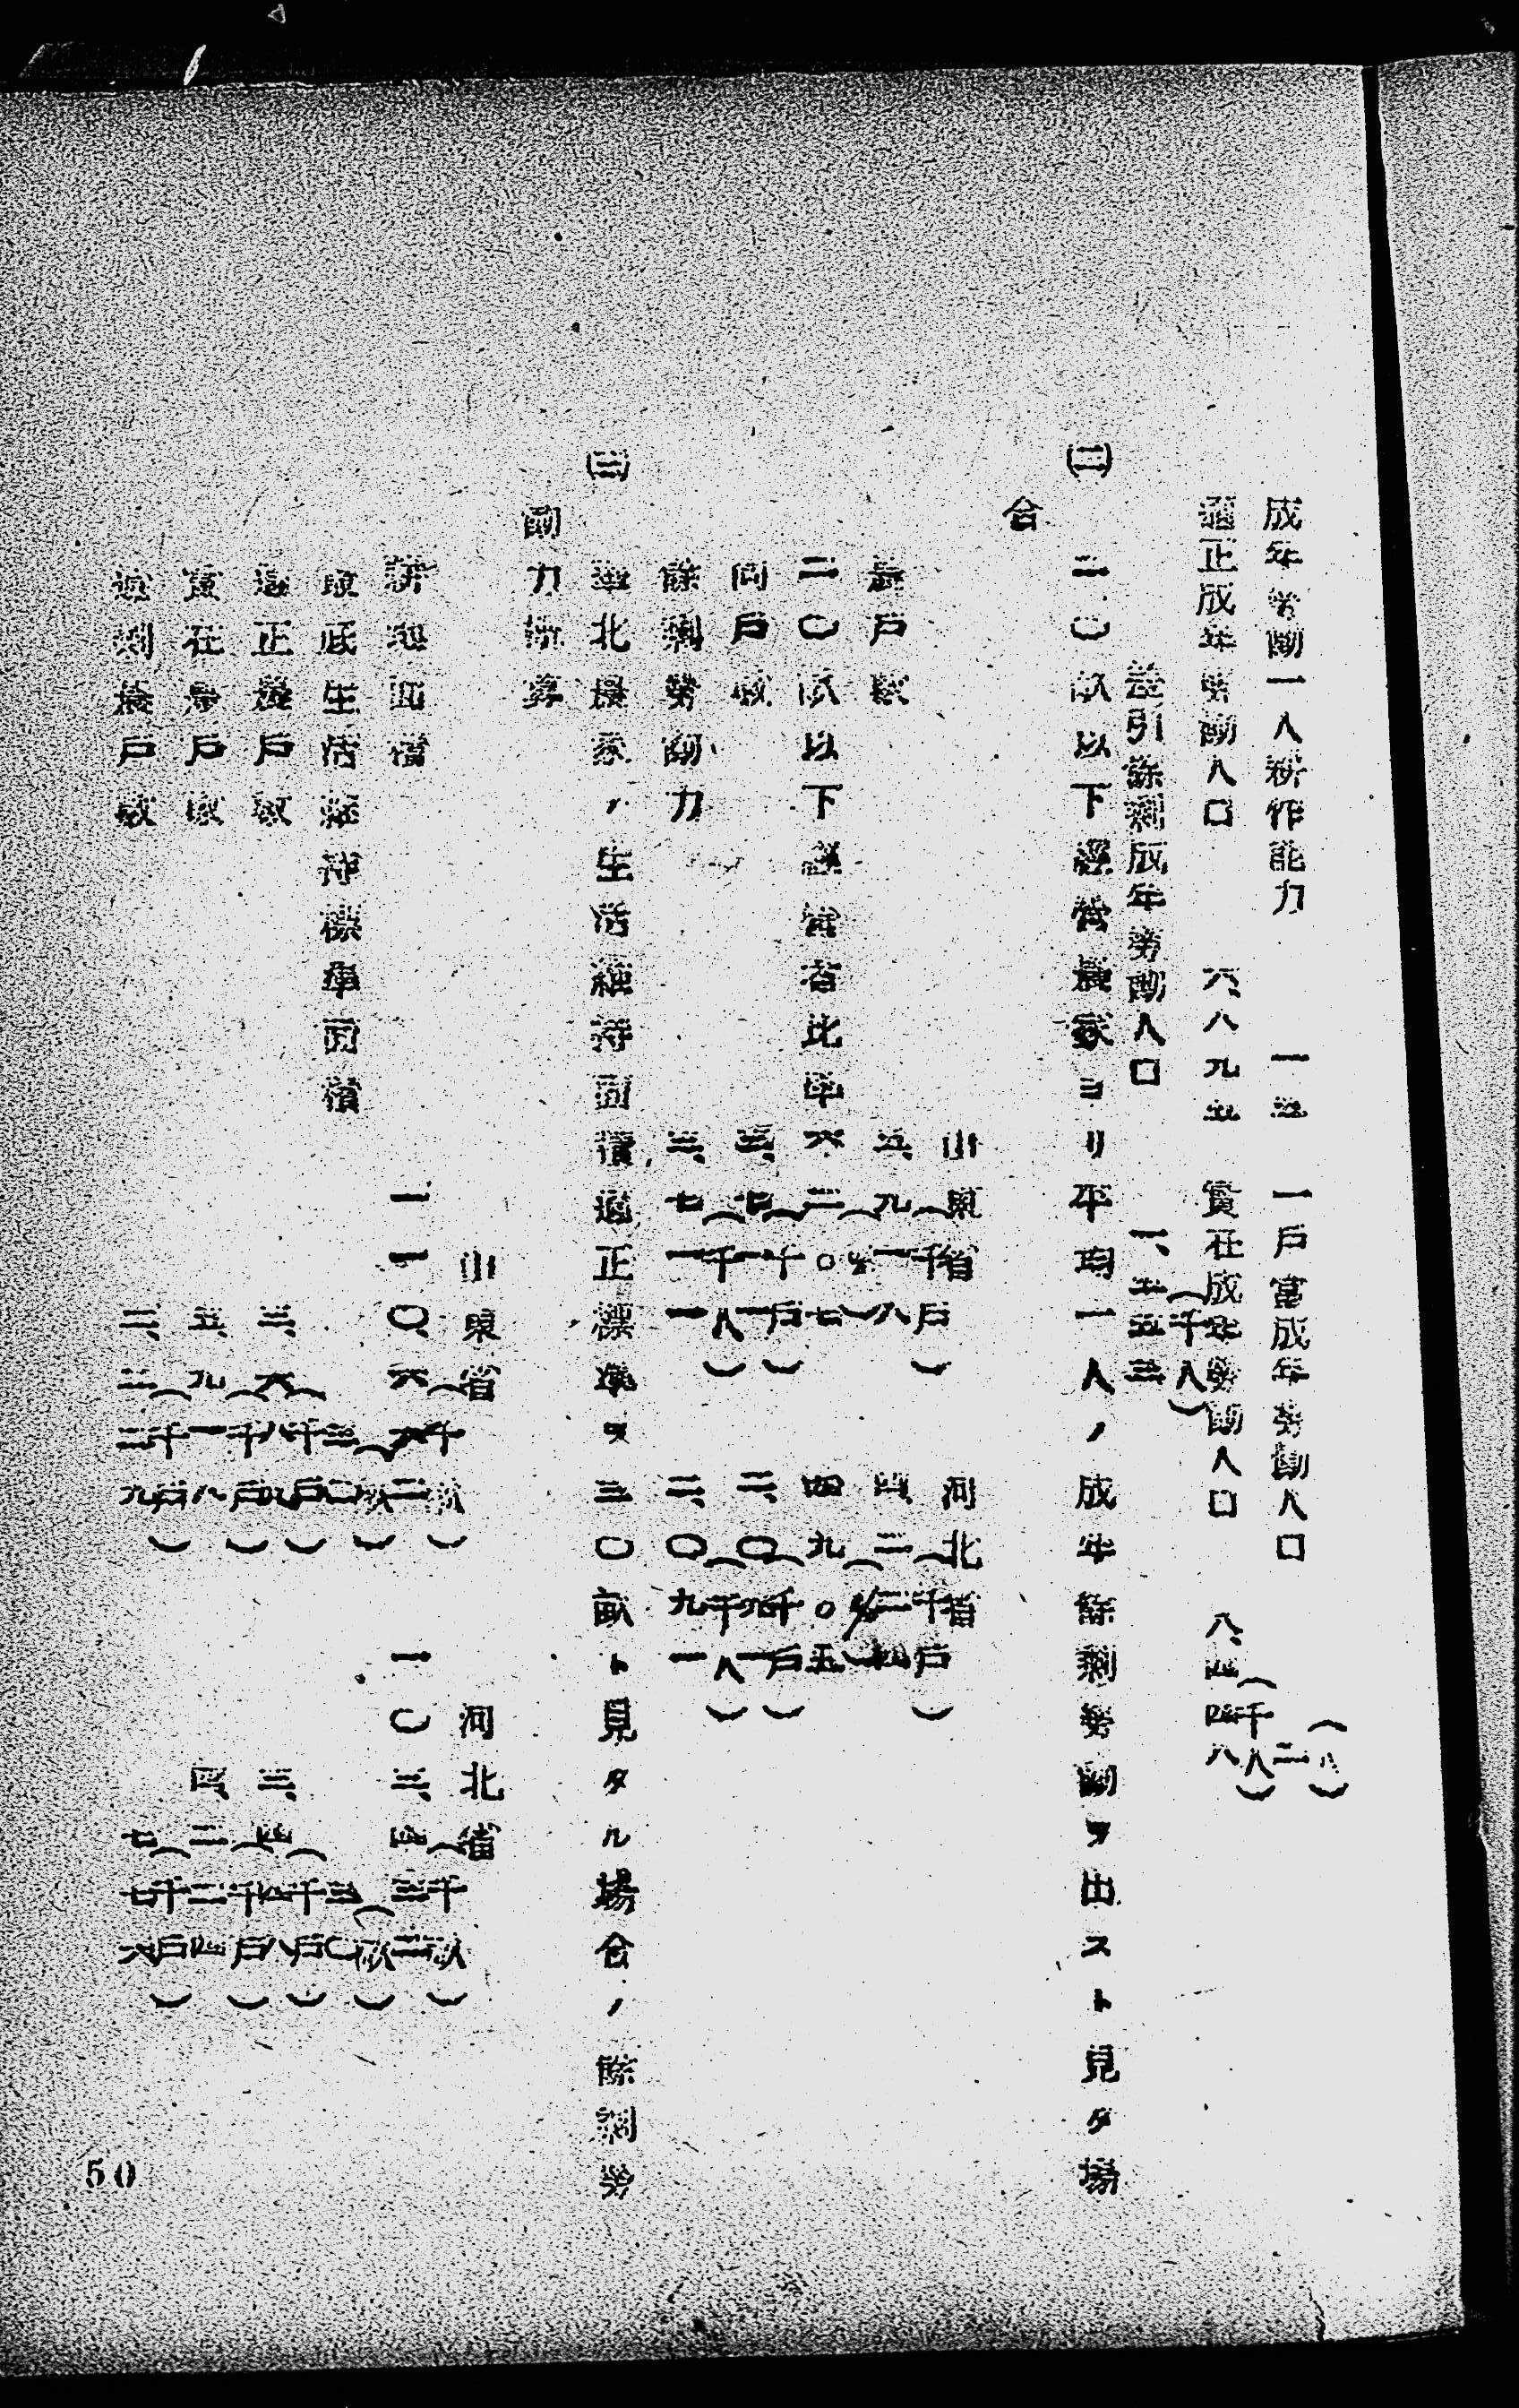 成年労働一人耕作能力 一五 一戸当成年労働人口 二(人)
適正成年労働人口 六、八九五 実在成年労働人口 八、四四八(千人)
差引余剰成年労働人口 一、五五三(千人)
(二) 二〇畝以下経営農家ヨリ平均一人ノ成年余剰労働ヲ出スト見タ場
合
山東省 河北省
農戸数 五、九一八(千戸) 四、二二四(千戸)
二〇畝以下経営者比率 六二。七(%) 四九。五(%)
同戸数 三、七一一(千戸) 二、〇九一(千戸)
余剰労働力 三、七一一(千人) 二、〇九一(千人)
(三) 華北農家ノ生活維持面積、適正標準ヲ三〇畝ト見タル場合ノ余剰労
働力概算
山東省 河北省
耕地面積 一一〇、六六二(千畝) 一〇三、四三二(千畝)
最低生活維持標準面積 三〇(畝) 三〇(畝)
適正農戸数 三、六八九(千戸) 三、四四八(千戸)
実在農戸数 五、九一八(千戸) 四、二二四(千戸)
過剰農戸数 二、二二九(千戸) 七七六(千戸)
50